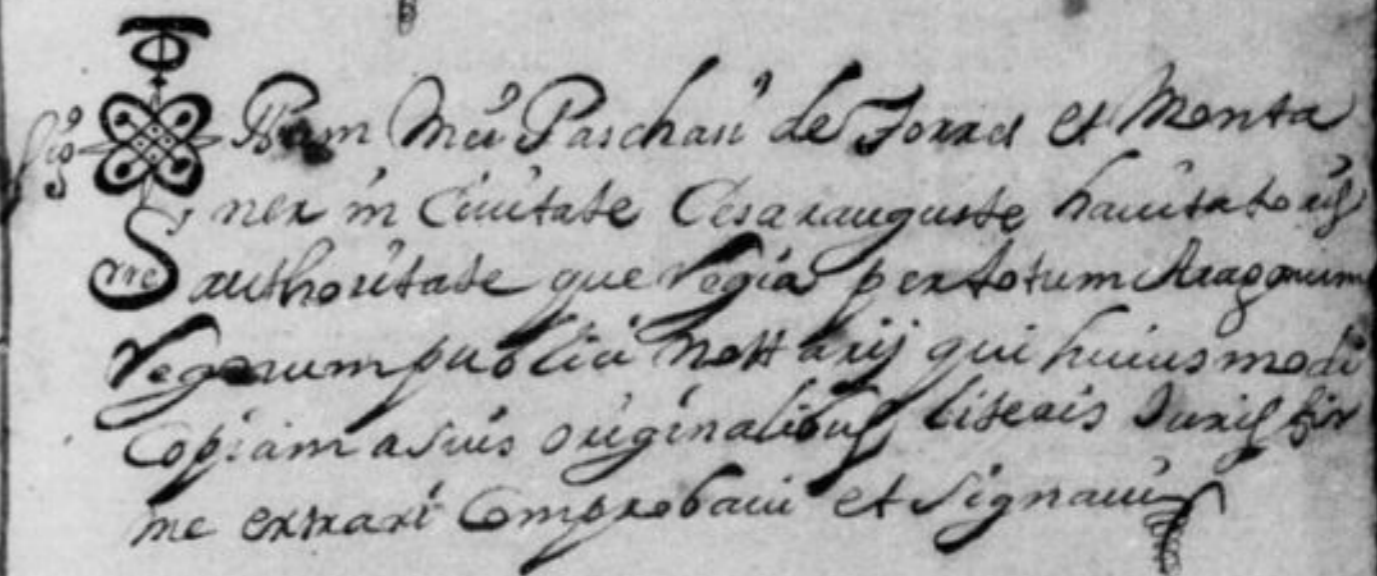 Sig num Mei Paschasii de Torres et Monta
ner in Ciuitate Cesarauguste hauitatoris
authoritate que Regia per totum Aragonum
Regnum publici Nottarij qui huiusmodi
Copiam a suis originalibus literis Juris fir
me extraxi Comprobaui et Signaui